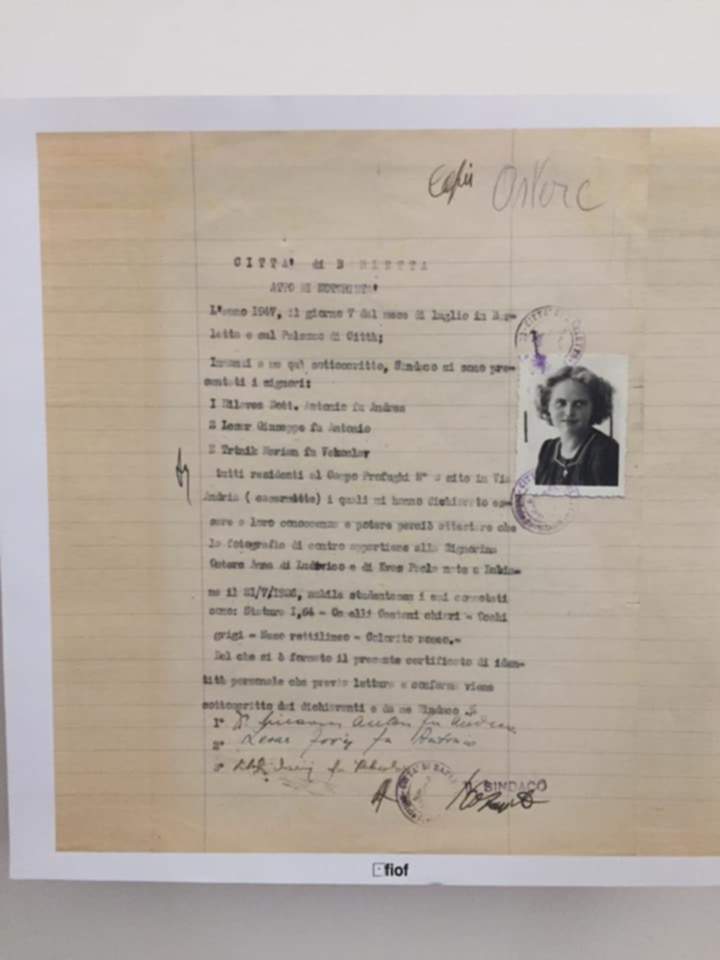 Copii Osterc
CITTA' di B RLETTA
ATTO DI NOTORIETA'
L'anno 1947, il giorno 7 del mese di luglio in Bar-
letta e sul Palazzo di Città;
Innanzi a me quì sottoscritto, Sindaco si sono pre-
sentati i signori:
I Dott. Antonio fu Andrea
2 Lesar Giuseppe fu Antonio
3 fu
tutti residenti al Campo Profughi N° sito in Via
Andria ( casermette) i quali mi hanno dichiarato es-
sere a loro conoscenza e potere perciò attestare che
la fotografia di contro appartiene alla Signorina
Osterc Anna di Ludovico e di Paola nata a
na il 21/7/ nubile studentessa i cui connotati
sono: Statura I,64 - Capelli Castani chiari - Occhi
grigi - Naso rettilineo - Colorito roseo.-
Del che si è formato il presente certificato di iden-
tità personale che previa lettura e conferma viene
sottoscritto dai dichiaranti e da me Sindaco
1° fu Andrea
2° Lesar fu
3° fu
IL SINDACO
fiof